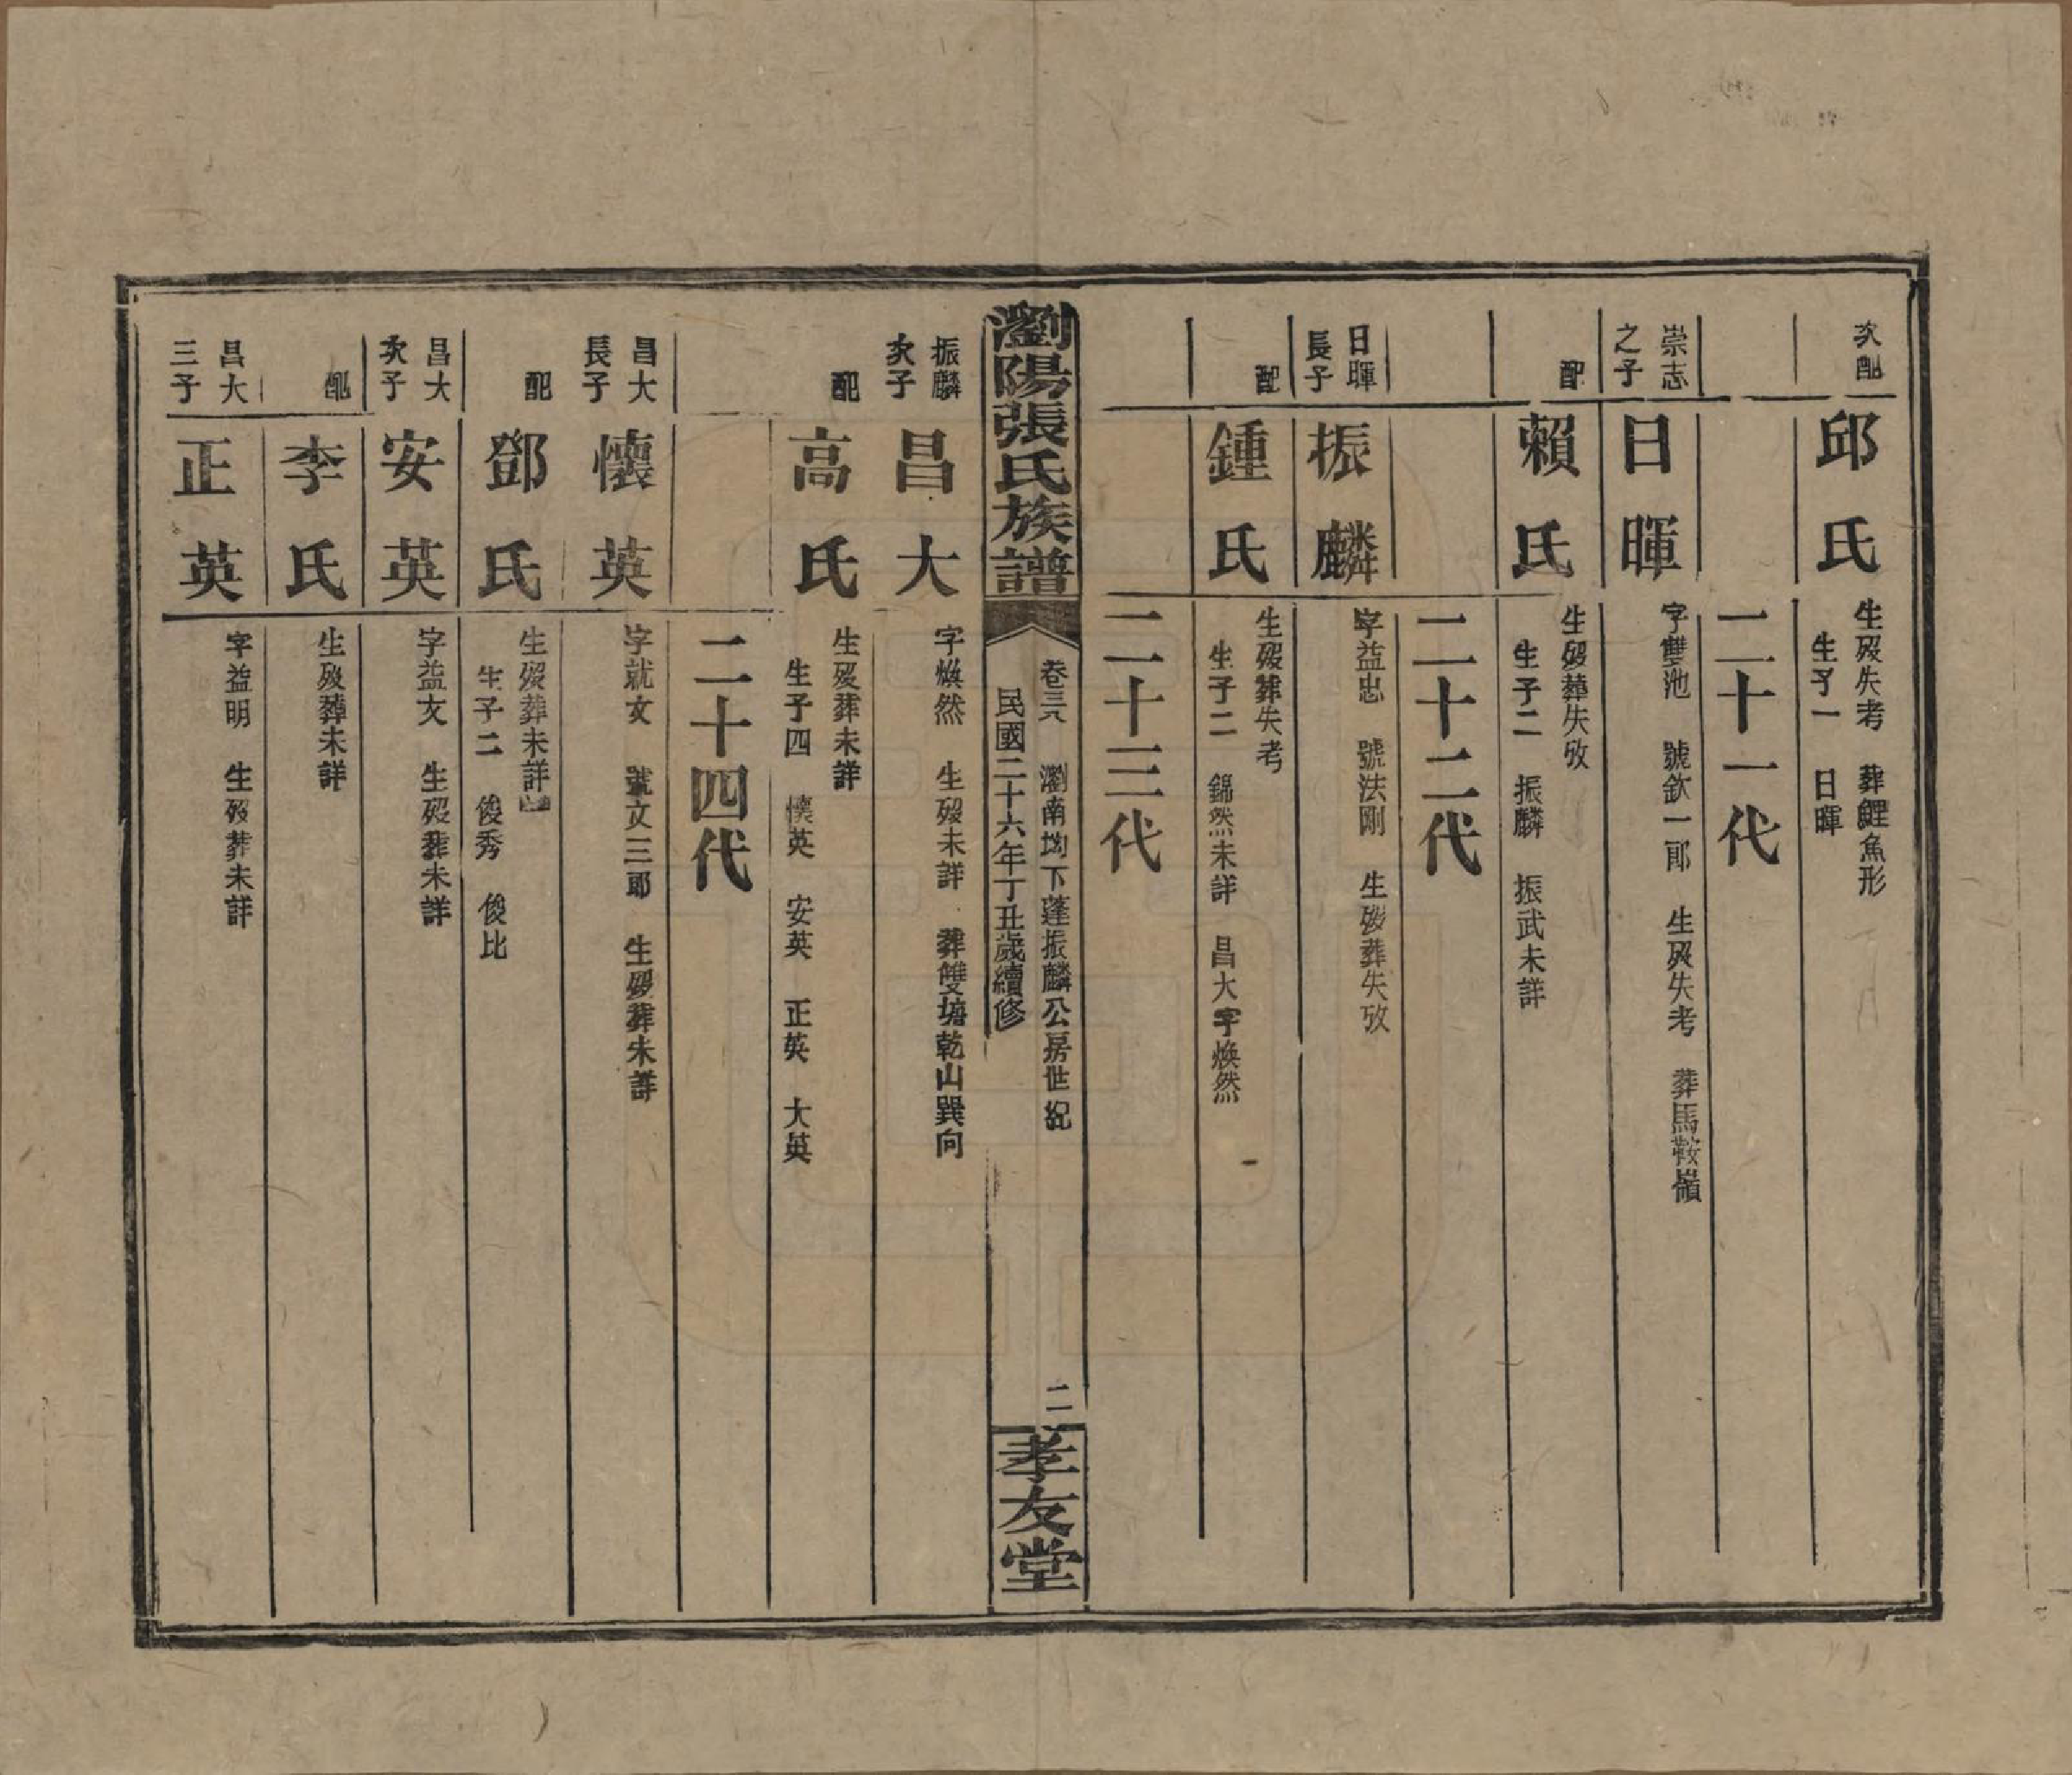 次配
邱氏
生歿失考　葬鯉魚形
生子一　日暉
二十一代
崇志
之子
日暉
字雙池　號欽一郎　生歿失考　葬馬鞍嶺
配
賴氏
生歿葬失攷
生子二　振麟　振武未詳
二十二代
日暉
長子
振麟
字益忠　號法剛　生歿葬失攷
配
鍾氏
生歿葬失考
生子二　錦然未詳　昌大字煥然
二十三代
瀏陽張氏族譜
卷三六　瀏南坳下蓬振麟公房世紀
民國二十六年丁丑歲續修
二
孝友堂
振麟
次子
昌大
字煥然　生歿未詳　葬雙塘乾山巽向
配
高氏
生歿葬未詳
生子四　懷英　安英　正英　大英
二十四代
昌大
長子
懷英
字就文　號文三郎　生歿葬未詳
配
鄧氏
生歿葬未詳
生子二　俊秀　俊比
昌大
次子
安英
字益友　生歿葬未詳
配
李氏
生歿葬未詳
昌大
三子
正英
字益明　生歿葬未詳